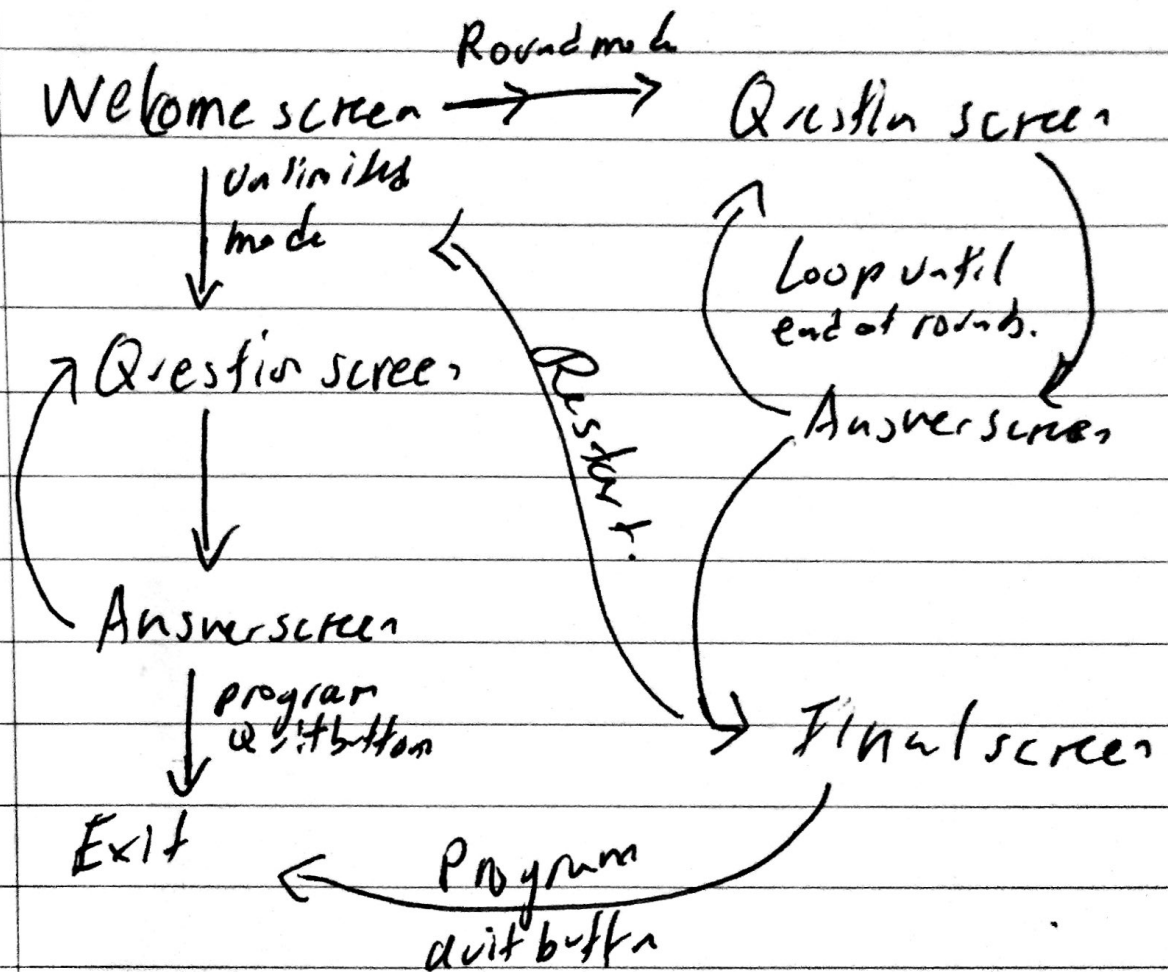 Round mode
Welcome screen
Question screen
Unlimited
mode
Loop until
end of rounds.
Question screen
Restart.
Answer screen
Answer screen
program
Quit button
Final screen
Exit
Program
quit button